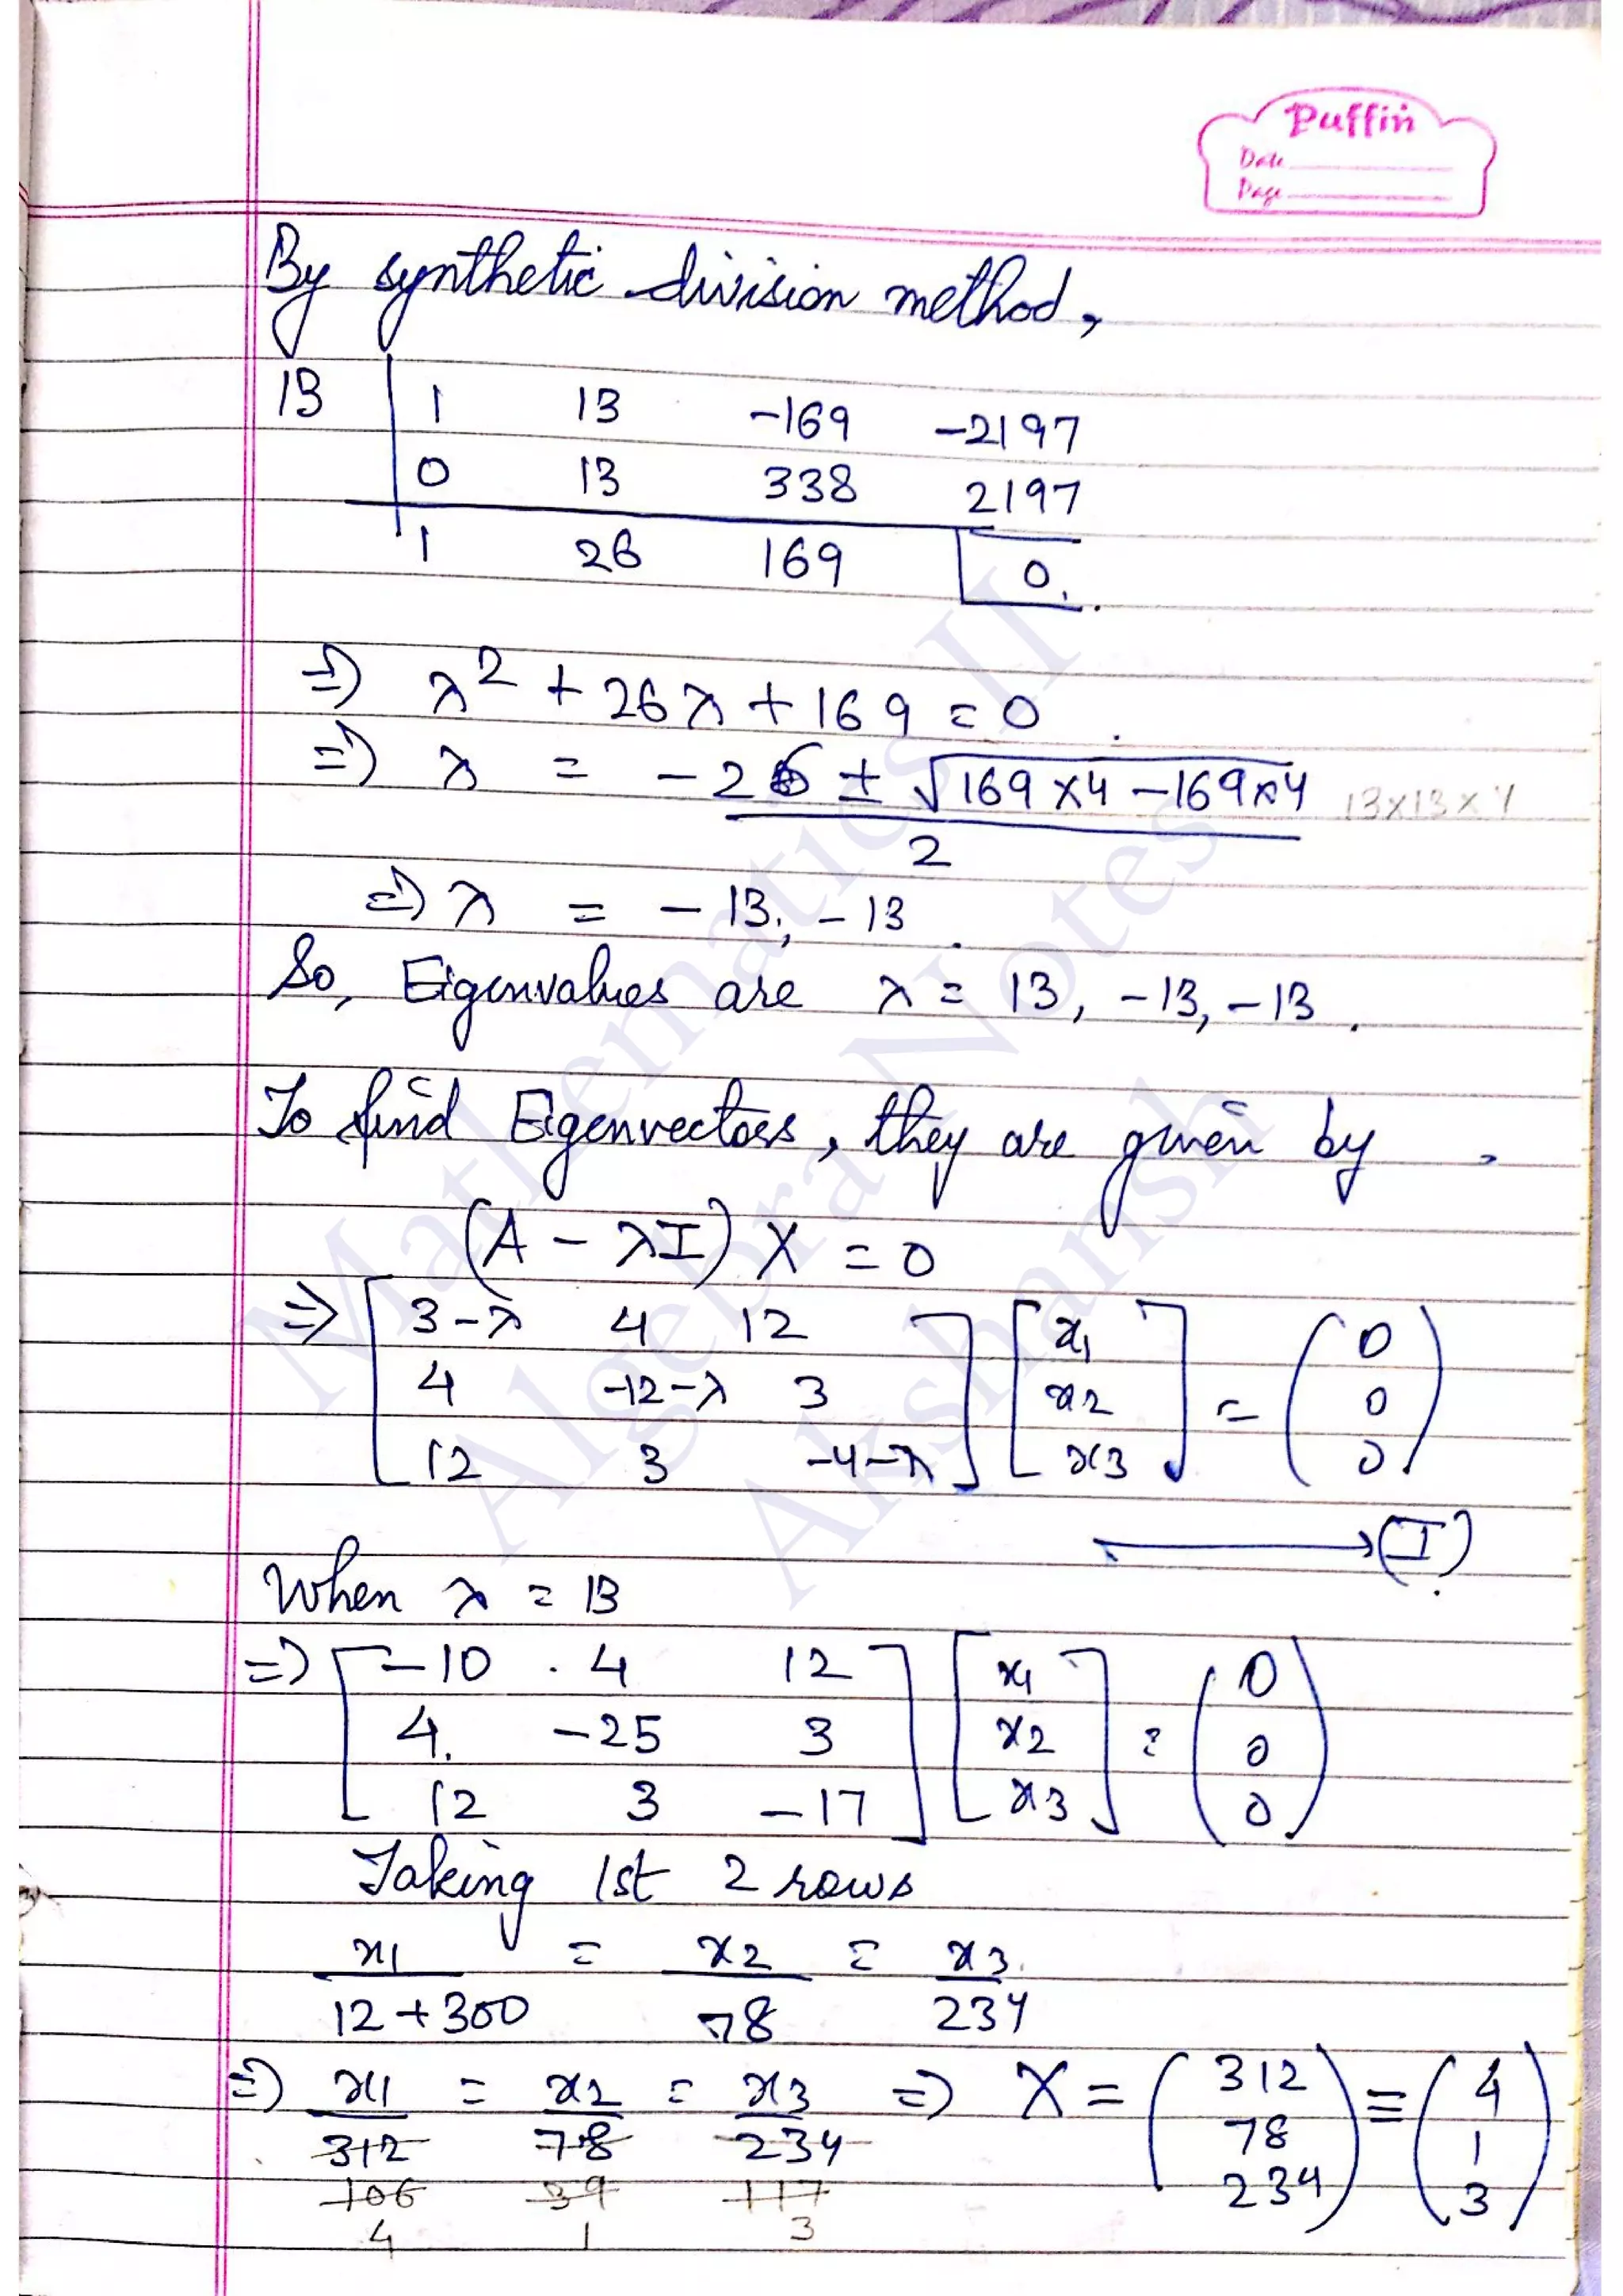 Puffin
Date
Page
By synthetic division method,
13 | 1 13 -169 -2197
0 13 338 2197
1 26 169 0
=) λ² + 26λ + 169 = 0
=) λ = -26 ± √169×4 -169×4 13×13×4
2
=) λ = -13, -13
So, Eigenvalues are λ = 13, -13, -13.
To find Eigenvectors, they are given by
(A - λI) X = 0
=> [3-λ 4 12] [x1] = (0)
[4 -12-λ 3] [x2] (0)
[12 3 -4-λ] [x3] (0)
→ (I)
When λ = 13
=) [-10 4 12] [x1] = (0)
[4 -25 3] [x2] (0)
[12 3 -17] [x3] (0)
Taking 1st 2 rows
x1 = x2 = x3
12+300 78 234
=) x1 = x2 = x3 =) X = (312) ≡ (4)
312 78 234 (78) (1)
106 39 117 (234) (3)
4 1 3
Mathematics II
Algebra Notes
Akshansh